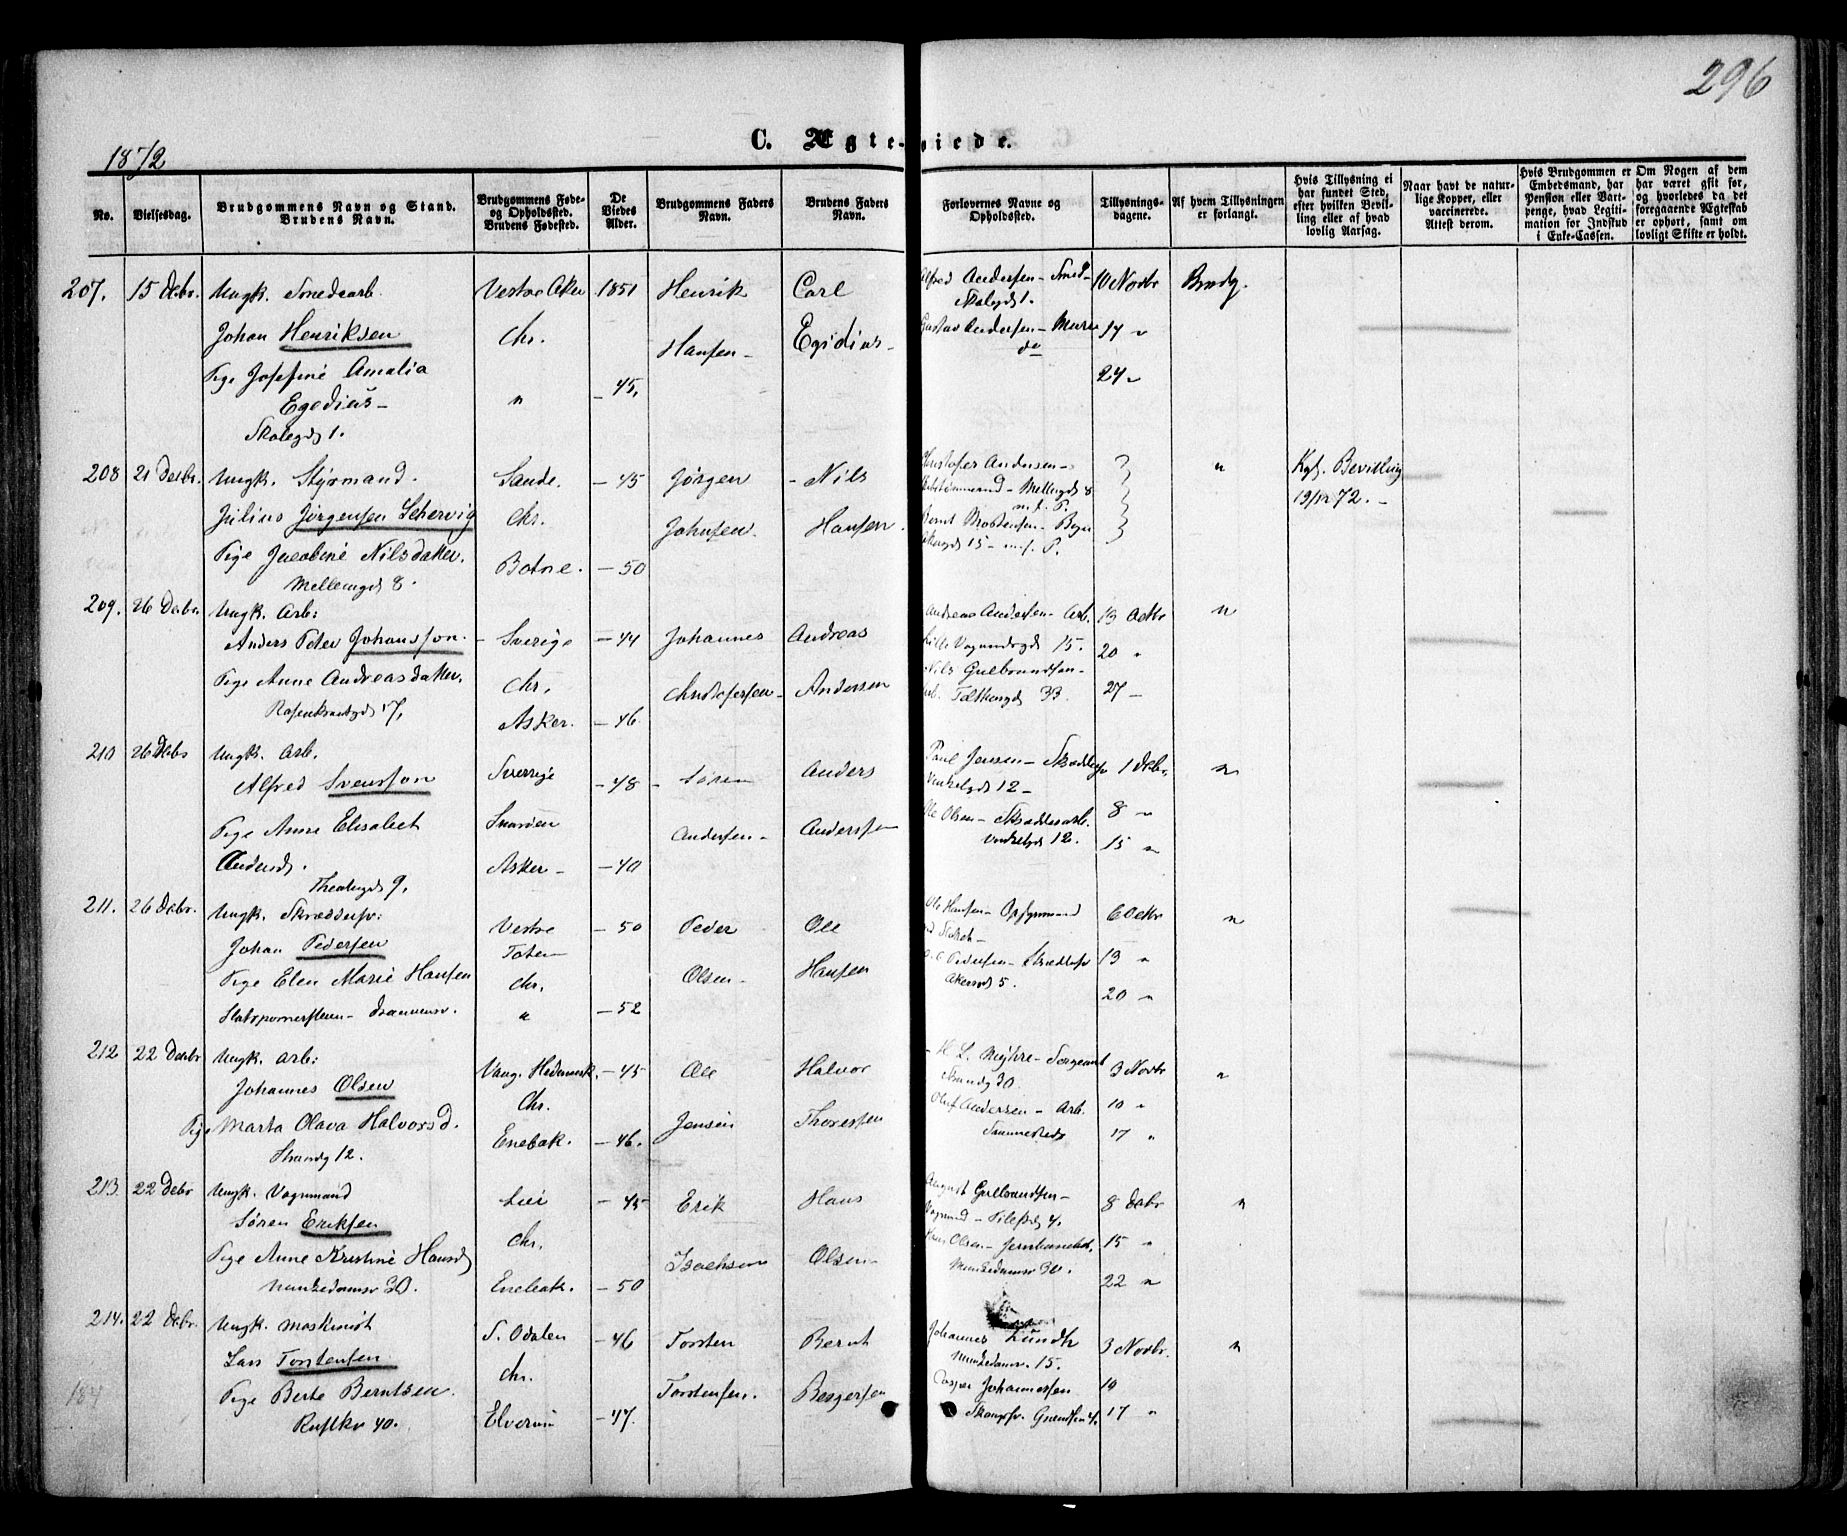 296
C. Ægteviede.
1872
No.
Vielsesdag.
Brudgommens Navn og Stand.
Brudens Navn.
Brudgommens Føde-
og Opholdssted.
Brudens Fødested.
De
Viedes
Alder.
Brudgommens Faders
Navn.
Brudens Faders
Navn.
Forlovernes Navne og
Opholdssted.
Tillysnings-
dagene.
Af hvem Tillysningen
er forlangt.
Hvis Tillysning ei
har fundet Sted,
efter hvilken Bevil-
ling eller af hvad
lovlig Aarsag.
Naar havt de natur-
lige Kopper, eller
vaccinerede.
Attest derom.
Hvis Brudgommen er
Embedsmand, har
Pension eller Vart-
penge, hvad Legiti-
mation for Indskud
i Enke-Cassen.
Om Nogen af dem
har været gift før,
og hvorledes da det
foregaaende Ægteskab
er ophørt, samt om
lovligt Skifte er holdt.
207. 15 Debr. Ungk. Smedearb. Vestre Aker 1851 Henrik Carl Alfred Andersen - Smed - 10 Novbr Brudg.
Johan Henriksen Chr. Hansen - Egidius - Gustav Andersen - Murer 17 "
do
Pige Josefine Amalia " - 45, 24 "
Egedius -
1.
208 21 Decbr. Ungk. Styrmand. Sande. - 45 Jørgen - Nils Christofer Andersen - " Kgl. Bevilling
Mellemgd 8 19/12 72. -
Julius Jørgensen Schervig Chr. Johnsen. Hansen. m. f. P.
Bernt Mortensen -
15 - m. f. P.
Pige Jacobine Nilsdatter. Botne. - 50
Mellemgd 8.
209. 26 Debr. Ungk. Arb:
Anders Peter Johansson. - Sverige - 44 Johannes Andreas Andreas Andersen - Arb. 13 Octbr "
Lille Vognmdsgd 15. 20 "
Pige Anne Andreasdatter. Chr. Christofersen - Andersen Nils Gulbrandsen - 27 -
Rosenkrantzgd 17, Asker. - 46. 33.
210 26 Debr Ungk. Arb. Sverrige - 48 - Søren Anders Paul Jenssen - Skrædder 1 Debr. "
Alfred Svensson Vinkelgd 12 -
Pige Anne Elisabet Andersen - Andersen Ole Olsen - Skrædderarb. 8 "
Vinkelgd 12. 15 "
Andersd. Asker - - 40
Theatergd 9,
211. 26 Debr. Ungk. Skræddersv: Vestre - 50 Peder Ole Ole Hansen - Opsynsmand 6 Octbr "
Johan Pedersen Toten
Pige Elen Marie Hansen Chr. Olsen - Hansen Pedersen - Skræddersv 13 "
Akersvd 5. 20 "
Drammensv. " - 52
212 22 Decbr Ungk. Arb: Vang. Hedemark. - 45 Ole Halvor H. L. Myhre - Sergeant 3 Novbr "
Johannes Olsen Chr. Strandg 30.
Pige Marta Olava Halvorsd. Enebak. - 46. Jensen Thoresen Oluf Andersen - Arb. 10 "
Strandg 12. 17 "
213 22 Debr Ungk. Vognmand Lier - 45 Erik Hans August Gulbrandsen - 8 Decbr "
Søren Eriksen Chr. Vognmand - Pilestd 4.
Pige Anne Kristine Hansd Isachsen Olsen - Hans Olsen - Jernbanebet. 15 "
Munkedamsv 30. Enebak. - 50 Munkedamsv 30. 22 "
214. 22 Debr. Ungk. Maskinist S. Odalen - 46 Torsten Bernt Johannes Lundh 3 Novbr. "
Munkedamsv. 15.
Lars Torstensen Chr.
184 Pige Berte Berntsen. Torstensen. Birgersen Casper Johannessen 10
Ruseløkv 40. Elverum - 47. Grændsen 4. 17 "